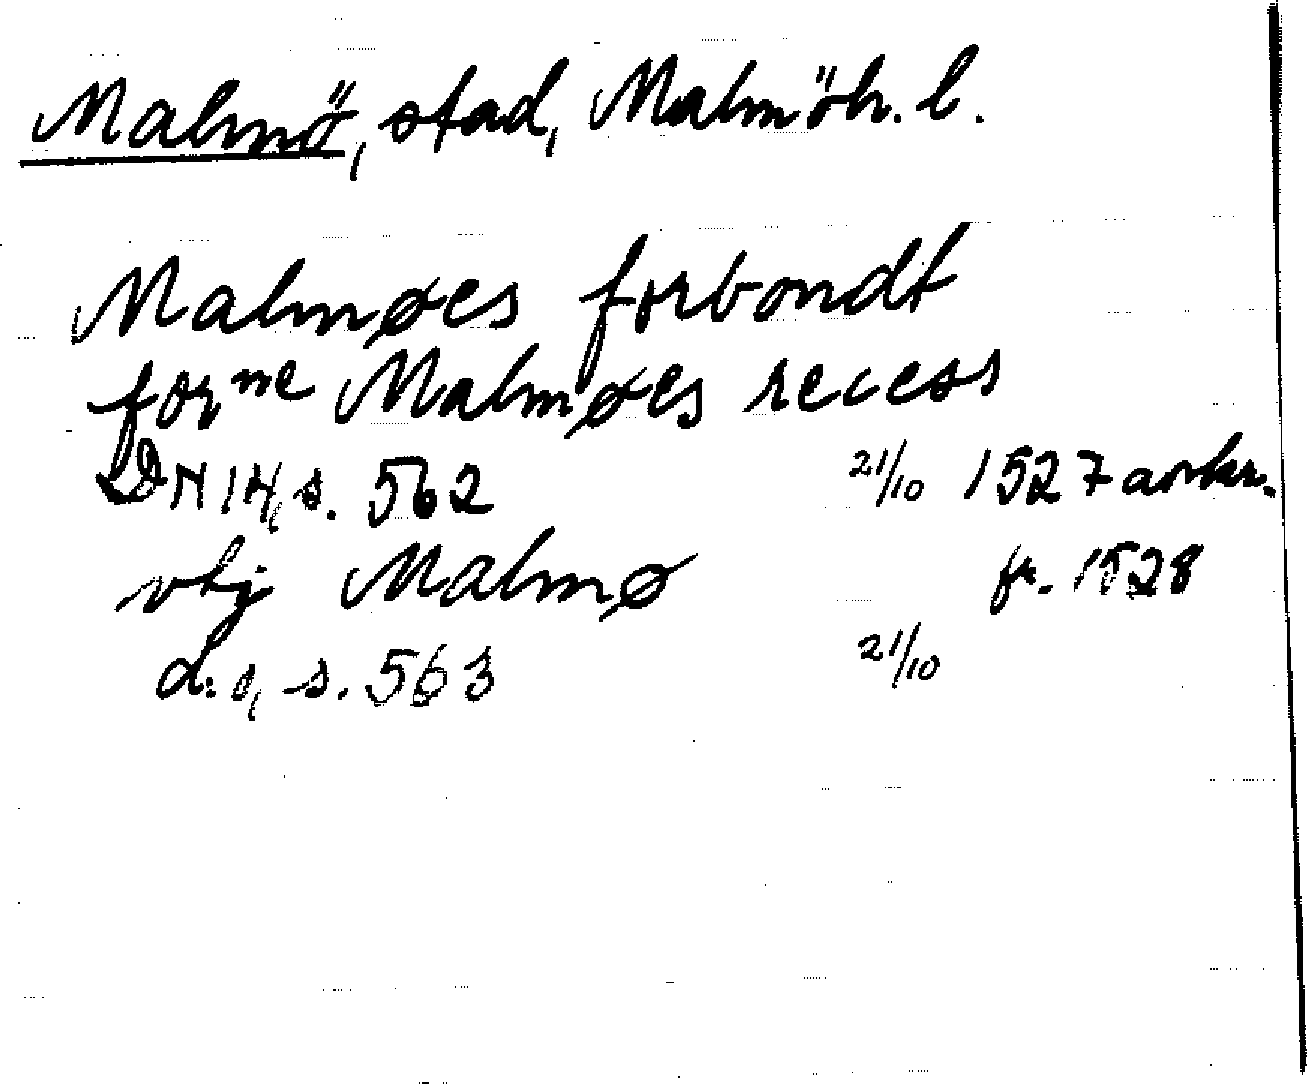 Malmö, stad, Malmöh. l.
Malmøes forbondt
forne Malmøes recess
DN 14, s. 562 21/10 1527 avskr.
vtj Malmø fr. 1528
d:o, s. 563 21/10